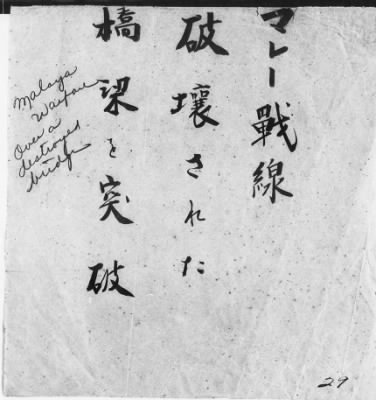 マレー戰線
破壞された
橋梁を突破
Malaya
Warfare
Over a
destroyed
bridge
29